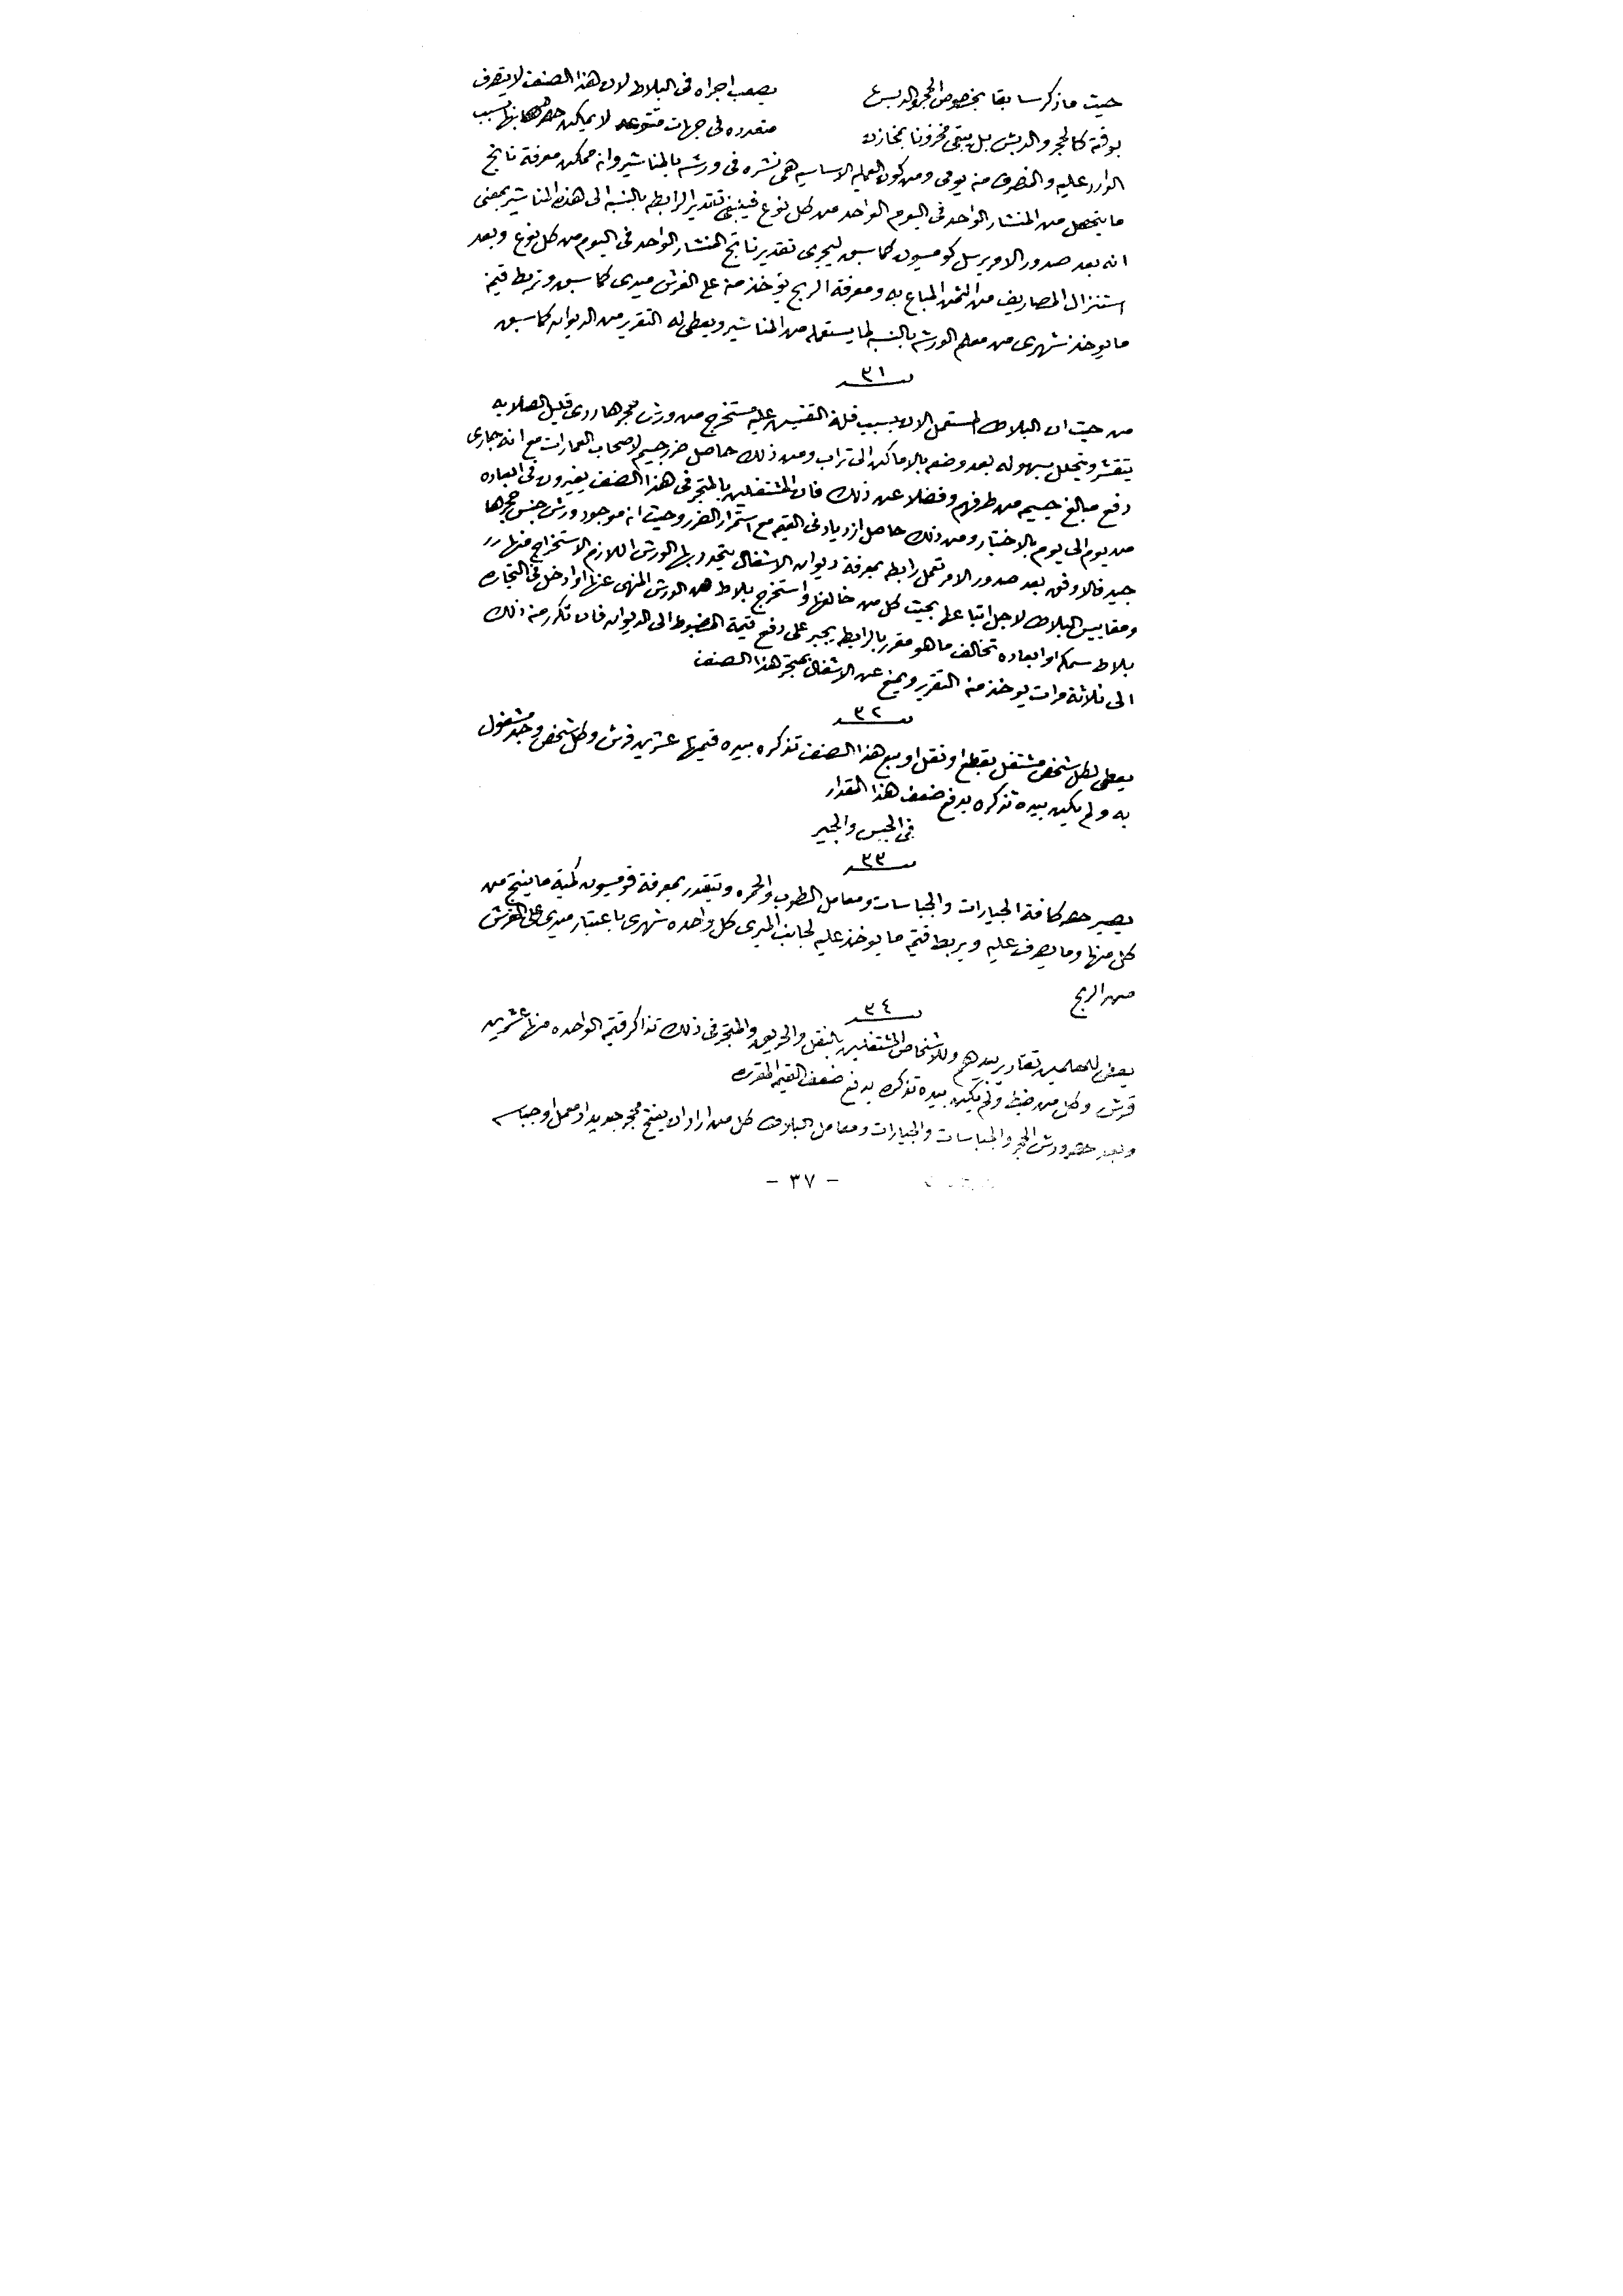 حيث ما ذكر سابقا بخصوص الحجر والدبش يصعب اجراه فى البلاط لان هذا الصنف لا يتصرف
بوقته كالحجر والدبش بل يبقى مخزونا بمخازن متعدده فى جهات متنوعه لا يمكن بسبب
الوارد عليه والمنصرف منه يومى ومن كون العمليه الاساسيه هى نشره فى ورشه بالمناشير وانه ممكن معرفة ناتج
ما يتحصل من المنشار الواحد فى اليوم الواحد من كل نوع فينبغى تقدير الرابطه بالنسبه الى هذه المناشير بمعنى
انه بعد صدور الامر يرسل كومسيون كما سبق ليجرى تقدير ناتج المنشار الواحد فى اليوم من كل نوع وبعد
استنزال المصاريف من الثمن المباع به ومعرفة الربح يؤخذ منه على الغرش ميدى كما سبق وتربط قيمة
ما يوخذ شهرى من معلم الورشه بالنسبه لما يستعمله من المناشير ويعطى له التقرير من الديوان كما سبق
٣١
من حيث ان البلاط المستعمل الان بسبب قلة التفتيش عليه مستخرج من ورش حجرها ردى قليل الصلابه
يتقشر ويتحلل بسهوله بعد وضعه بالاماكن الى تراب ومن ذلك حاصل ضرر جسيم لاصحاب العمارات مع انه جارى
دفع مبالغ جسيمه من طرفهم وفضلا عن ذلك فان المشتغلين بالمتجر فى هذا الصنف يغيرون فى ابعاده
من يوم الى يوم بالاختيار ومن ذلك حاصل ازدياد فى القيم مع استمرار الضرر وحيث انه موجود ورش جنس حجرها
جيد فالاوفق بعد صدور الامر تعمل رابطه بمعرفة ديوان الاشغال يتحدد بها الورش اللازم الاستخراج منها
ومقاييس البلاط لاجل اتباعها بحيث كل من خالفها واستخرج بلاط من الورش المنهى عنها او ادخل فى التجاره
بلاط سمكه او ابعاده تخالف ما هو مقرر بالرابطه يجبر على دفع قيمة المضبوط الى الديوان فان تكرر منه ذلك
الى ثلاثة مرات يوخذ منه التقرير ويمنع عن الاشغال بمتجر هذا الصنف
٣٢
يعطى لكل شخص مشتغل بقطع او نقل او بيع هذا الصنف تذكره بيده قيمتها عشرين قرش وكل شخص وجد مشغول
به ولم يكن بيده تذكره يدفع ضعف هذا المقدار
فى الجبس والجير
٣٣
يصير حصر كافة الجيارات والجباسات ومعامل الطوب والحمره ويتقدر بمعرفة قومسيون كمية ما ينتج من
كل منها وما يصرف عليه ويربط قيمة ما يوخذ عليه لجانب الميرى كل واحده شهرى باعتبار ميدى على الغرش
من الربح
٣٤
يعطى للمعلمين تقارير بيدهم وللاشخاص المشتغلين بالنقل والحريق والمتجر فى ذلك تذاكر قيمة الواحده منها عشرين
قرش وكل من ضبط ولم يكن بيده تذكره يدفع ضعف القيم المقرره
وبعد حصر ورش الحجر والجباسات والجيارات ومعامل البلاط كل من اراد ان يفتح محجر جديد او معمل او جباسه
- ٣٧ -